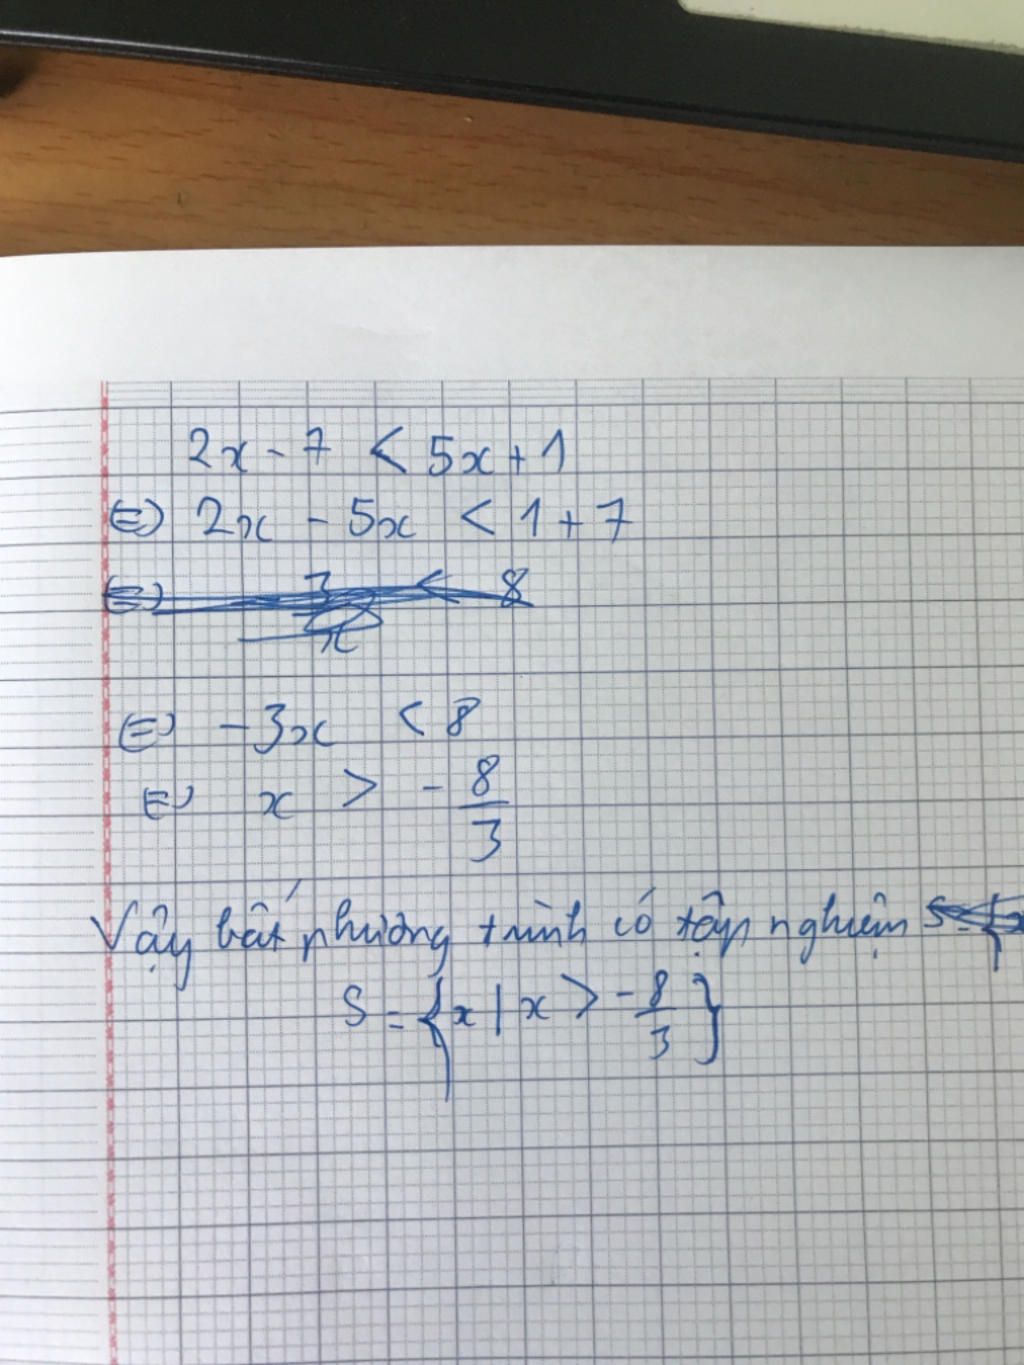 2x - 7 < 5x + 1
⇔ 2x - 5x < 1 + 7
⇔ -3x < 8
⇔ x > - 8/3
Vậy bất phương trình có tập nghiệm
S = {x | x > -8/3}